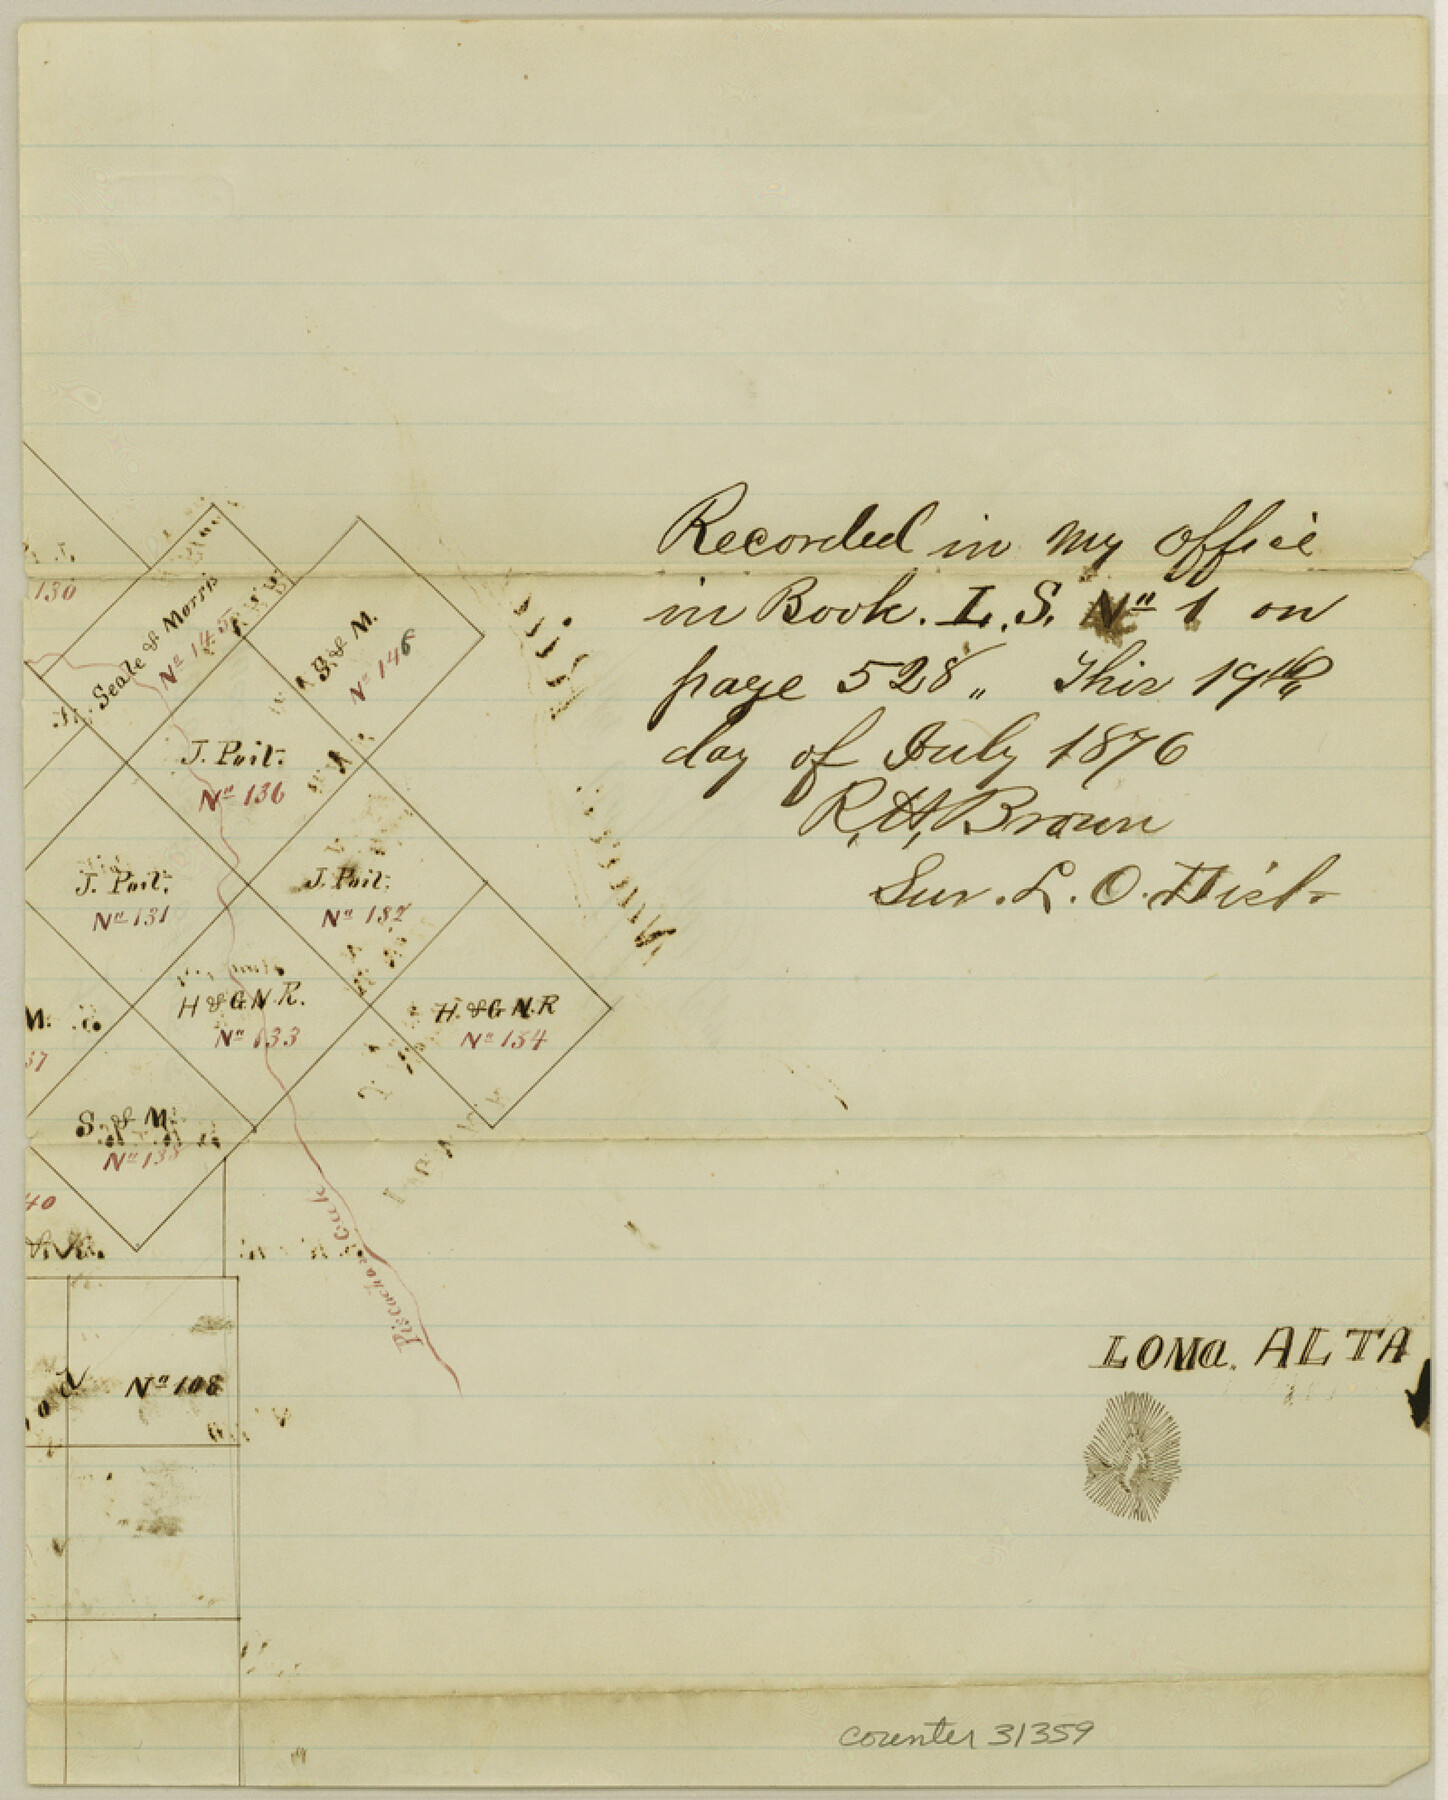 Recorded in my office
in Book. L. S. Nº 1 on
page 528 „ This 19th
day of July 1876
R. H. Brown
Sur. L. O. Dist.
130
Seale & Morris
Nº 145
S. & M.
Nº 146
J. Poit.
Nº 136
J. Poit.
Nº 131
J. Poit.
Nº 132
M.
37
H & G. N. R.
Nº 133
H. & G. N. R
Nº 134
S. & M.
Nº 138
40
Picachos Creek
Nº 108
LOMa. ALTA
counter 31359